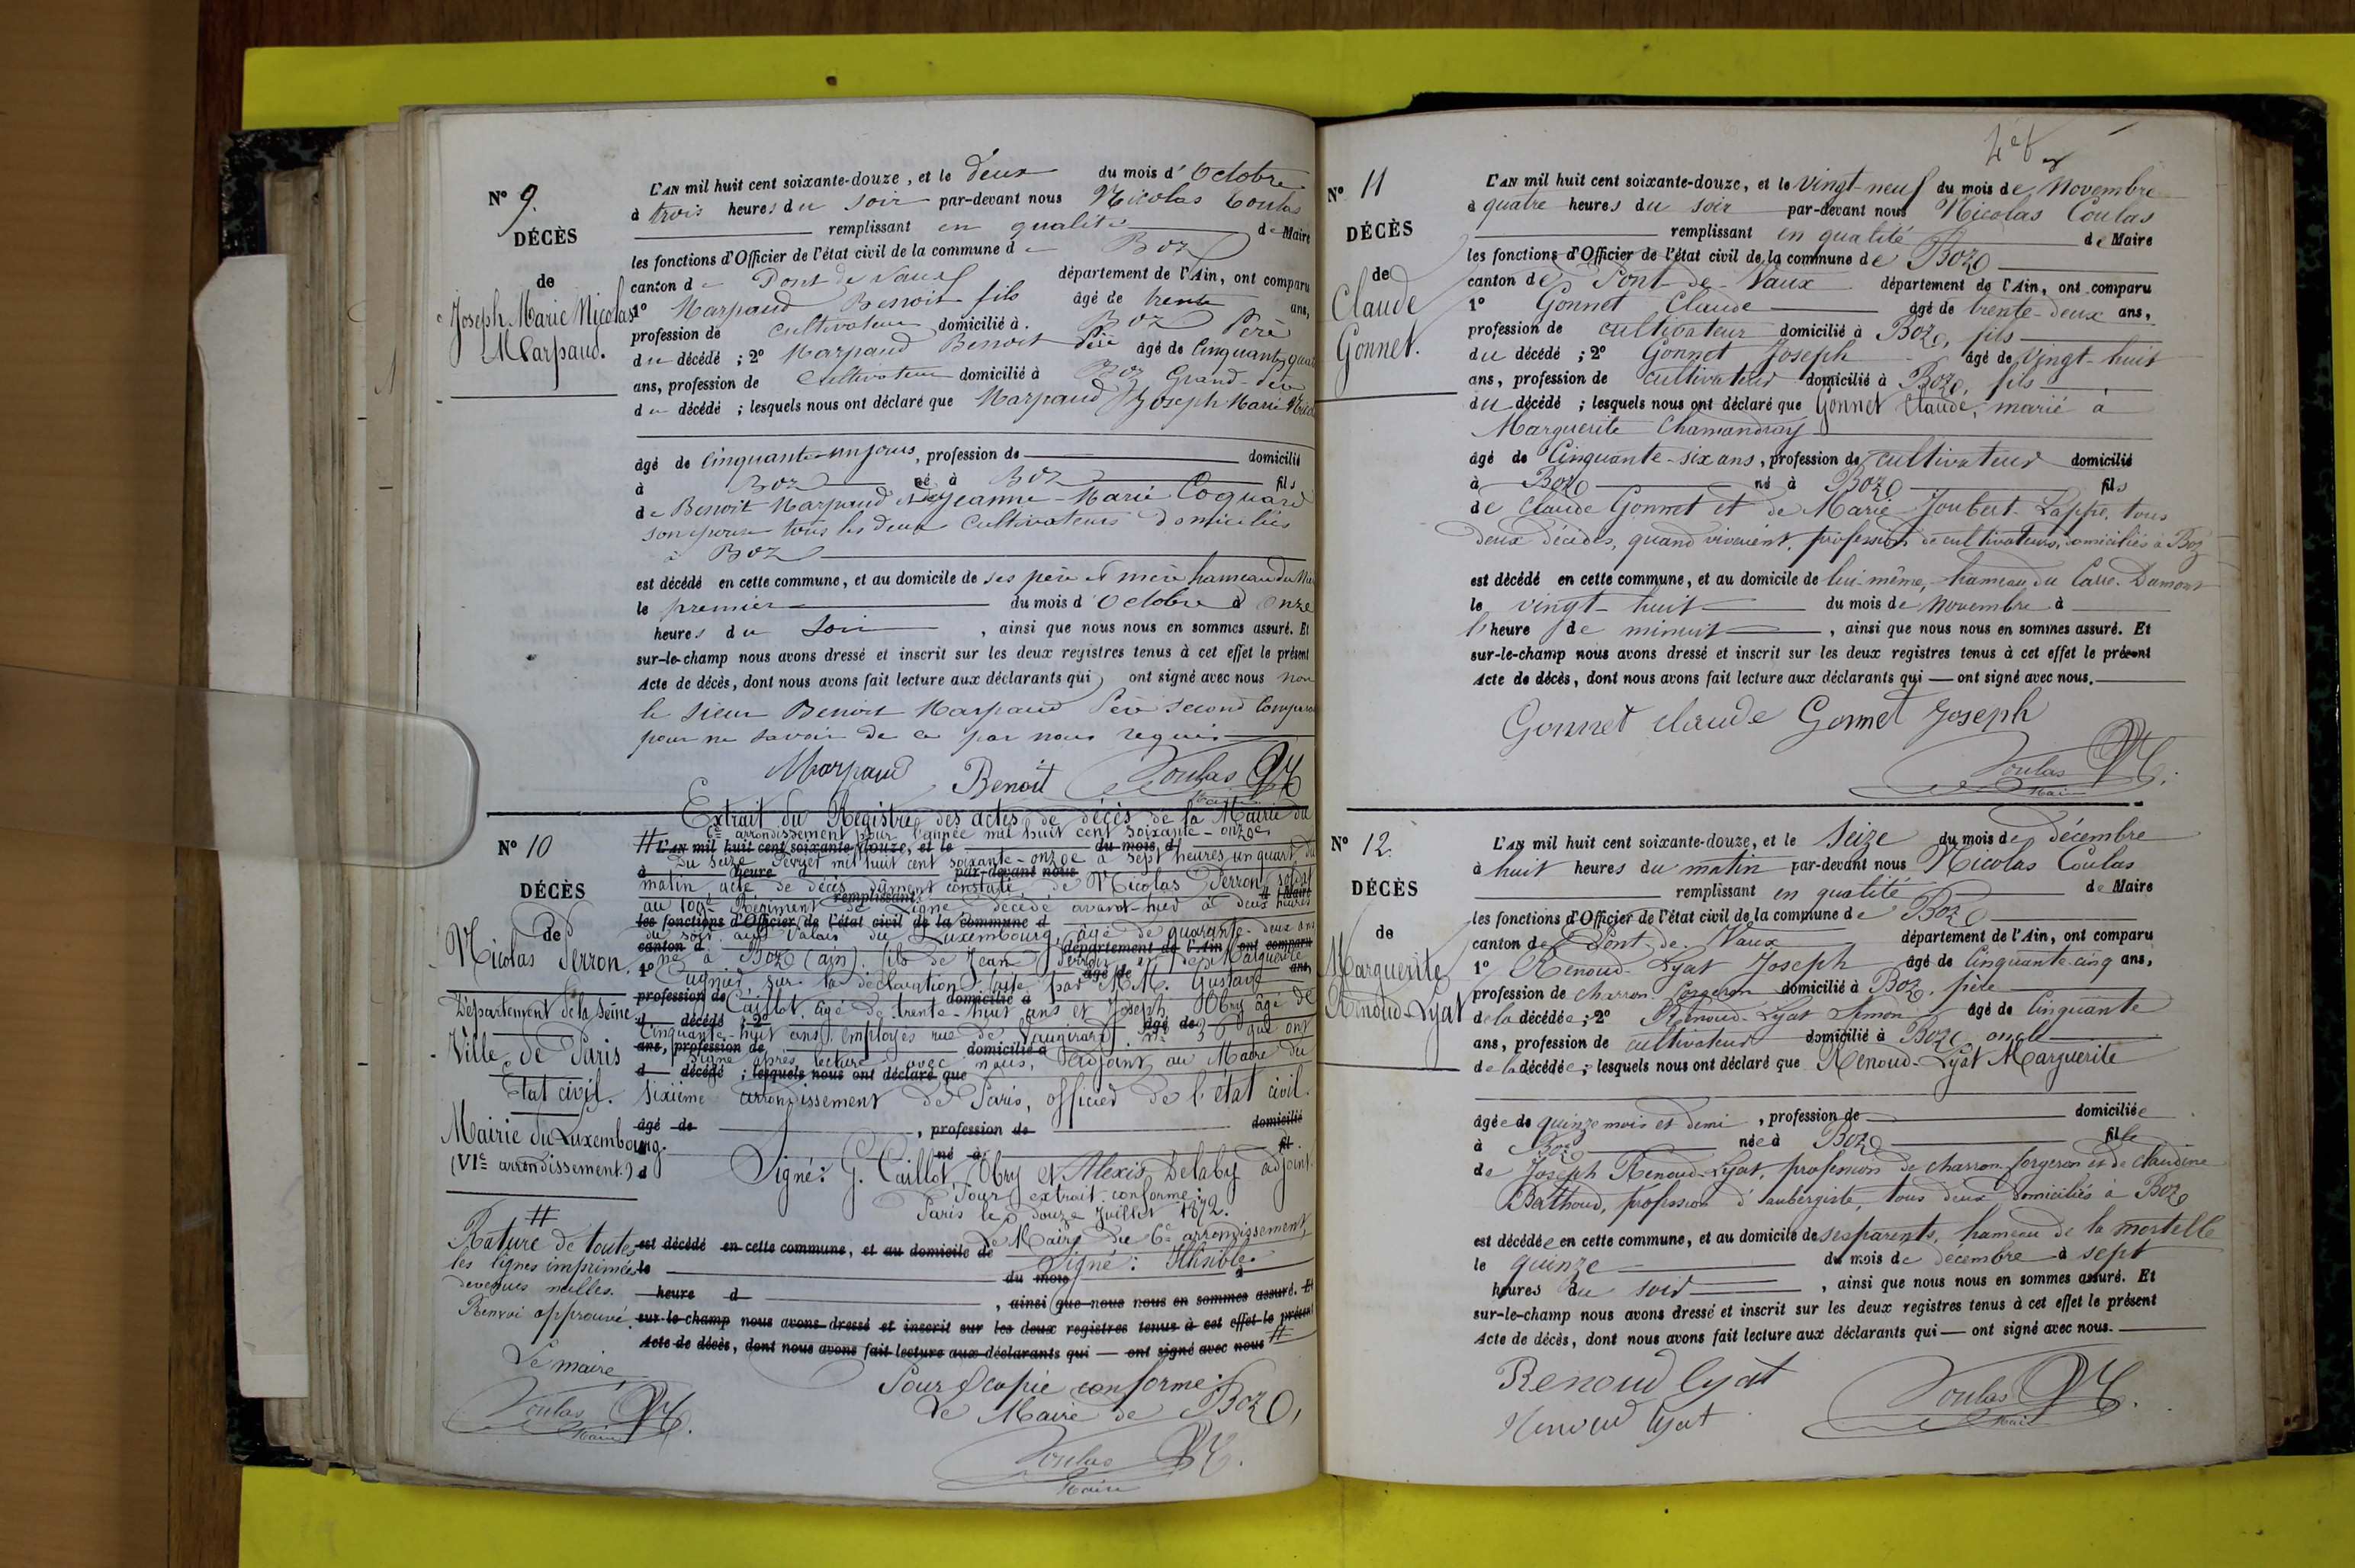 N° 9.
DÉCÈS
de
Joseph Marie Nicolas
Marpaud.
L'AN mil huit cent soixante-douze, et le deux du mois d'Octobre
à trois heures du soir par-devant nous Nicolas Coulas
remplissant en qualité de Maire
les fonctions d'Officier de l'état civil de la commune de Boz
canton de Pont de Vaux département de l'Ain, ont comparu
1° Marpaud Benoit fils âgé de trente ans,
profession de cultivateur domicilié à Boz Père
du décédé ; 2° Marpaud Benoit Père âgé de Cinquante quat
ans, profession de Cultivateur domicilié à Boz Grand-père
du décédé ; lesquels nous ont déclaré que Marpaud Joseph Marie Nicol
âgé de Cinquante-un jours, profession de domicilié
à Boz né à Boz fils
de Benoit Marpaud et de Jeanne-Marie Coquard
son épouse tous les deux Cultivateurs domiciliés
à Boz
est décédé en cette commune, et au domicile de ses père et mère hameau du
le premier du mois d'Octobre à onze
heures du Soir, ainsi que nous nous en sommes assuré. Et
sur-le-champ nous avons dressé et inscrit sur les deux registres tenus à cet effet le présent
Acte de décès, dont nous avons fait lecture aux déclarants qui ont signé avec nous non
le sieur Benoit Marpaud Père second Compara
pour ne savoir de ce par nous requis
Marpaud Benoit Coulas
Maire
N° 10
DÉCÈS
de
Nicolas Perron.
Département de la Seine
Ville de Paris
Etat civil.
Mairie du Luxembourg.
(VIe arrondissement.)
Extrait du Registre des actes de décès de la Mairie du
6e arrondissement pour l'année mil huit cent soixante-onze.
# L'AN mil huit cent soixante-douze, et le du mois d
Du seize Février mil huit cent soixante-onze à sept heures un quart du
à heure d par-devant nous
matin acte de décès dûment constaté de Nicolas Perron, soldat
remplissant # d Maire
au 109e Régiment de Ligne décédé avant-hier à deux heures
les fonctions d'Officier de l'état civil de la commune d
du soir, au Palais du Luxembourg, âgé de quarante-deux ans
canton d département de l'Ain, ont comparu
né à Boz (ain) fils de Jean Perron et de Marguerite
1° âgé de ans,
sur la déclaration faite par M.M. Gustave
profession de domicilié à
Caillot, âgé de trente-huit ans et Joseph Obry âgé de
d décédé ; 2° âgé de
Cinquante-huit ans, employés rue de Vaugirard, n° 36 que ont
ans, profession de domicilié à
signé après lecture avec nous, adjoint au Maire du
d décédé ; lesquels nous ont déclaré que
sixième arrondissement de Paris, officier de l'état civil.
âgé de , profession de domicilié
né à fil
d Signé : G. Caillot, Obry et Alexis Delaby adjoint.
Pour extrait conforme :
Paris le douze Juillet 1872.
Le Maire du 6e arrondissement,
est décédé en cette commune, et au domicile de
Signé : Illisible.
le du mois à
heure d , ainsi que nous nous en sommes assuré. Et
sur-le-champ nous avons dressé et inscrit sur les deux registres tenus à cet effet le présent
Acte de décès, dont nous avons fait lecture aux déclarants qui ont signé avec nous #
#
Rature de toutes
les lignes imprimées
devenues nulles.
Renvoi approuvé.
Le maire,
Coulas
Maire
Pour copie conforme :
Le Maire de Boz,
Coulas
Maire
N° 11
DÉCÈS
de
Claude
Gonnet.
L'AN mil huit cent soixante-douze, et le vingt-neuf du mois de Novembre
à quatre heures du soir par-devant nous Nicolas Coulas
remplissant en qualité de Maire
les fonctions d'Officier de l'état civil de la commune de Boz
canton de Pont-de-Vaux département de l'Ain, ont comparu
1° Gonnet Claude âgé de trente-deux ans,
profession de cultivateur domicilié à Boz, fils
du décédé ; 2° Gonnet Joseph âgé de vingt-huit
ans, profession de cultivateur domicilié à Boz, fils
du décédé ; lesquels nous ont déclaré que Gonnet Claude, marié à
Marguerite Chamandray
âgé de Cinquante-six ans, profession de cultivateur domicilié
à Boz né à Boz fils
de Claude Gonnet et de Marie Joubert-Lappe, tous
deux décédés, quand vivaient, profession de cultivateurs, domiciliés à Boz
est décédé en cette commune, et au domicile de lui-même, hameau du Carre-Damont
le vingt-huit du mois de novembre à
l'heure de minuit, ainsi que nous nous en sommes assuré. Et
sur-le-champ nous avons dressé et inscrit sur les deux registres tenus à cet effet le présent
Acte de décès, dont nous avons fait lecture aux déclarants qui — ont signé avec nous.
Gonnet claude Gonnet Joseph
Coulas
Maire
N° 12.
DÉCÈS
de
Marguerite
Renoud-Lyat
L'AN mil huit cent soixante-douze, et le Seize du mois de décembre
à huit heures du matin par-devant nous Nicolas Coulas
remplissant en qualité de Maire
les fonctions d'Officier de l'état civil de la commune de Boz
canton de Pont-de-Vaux département de l'Ain, ont comparu
1° Renoud-Lyat Joseph âgé de Cinquante-cinq ans,
profession de charron-forgeron domicilié à Boz, père
de la décédée ; 2° Renoud-Lyat Simon âgé de Cinquante
ans, profession de cultivateur domicilié à Boz, oncle
de la décédée ; lesquels nous ont déclaré que Renoud-Lyat Marguerite
âgée de quinze mois et demi, profession de domiciliée
à Boz née à Boz fille
de Joseph Renoud-Lyat, profession de charron-forgeron et de Claudine
Berthoud, profession d'aubergiste, tous deux domiciliés à Boz
est décédée en cette commune, et au domicile de ses parents, hameau de la mortelle
le quinze du mois de décembre à sept
heures du soir, ainsi que nous nous en sommes assuré. Et
sur-le-champ nous avons dressé et inscrit sur les deux registres tenus à cet effet le présent
Acte de décès, dont nous avons fait lecture aux déclarants qui — ont signé avec nous.
Renoud lyat
Renoud lyat
Coulas
Maire